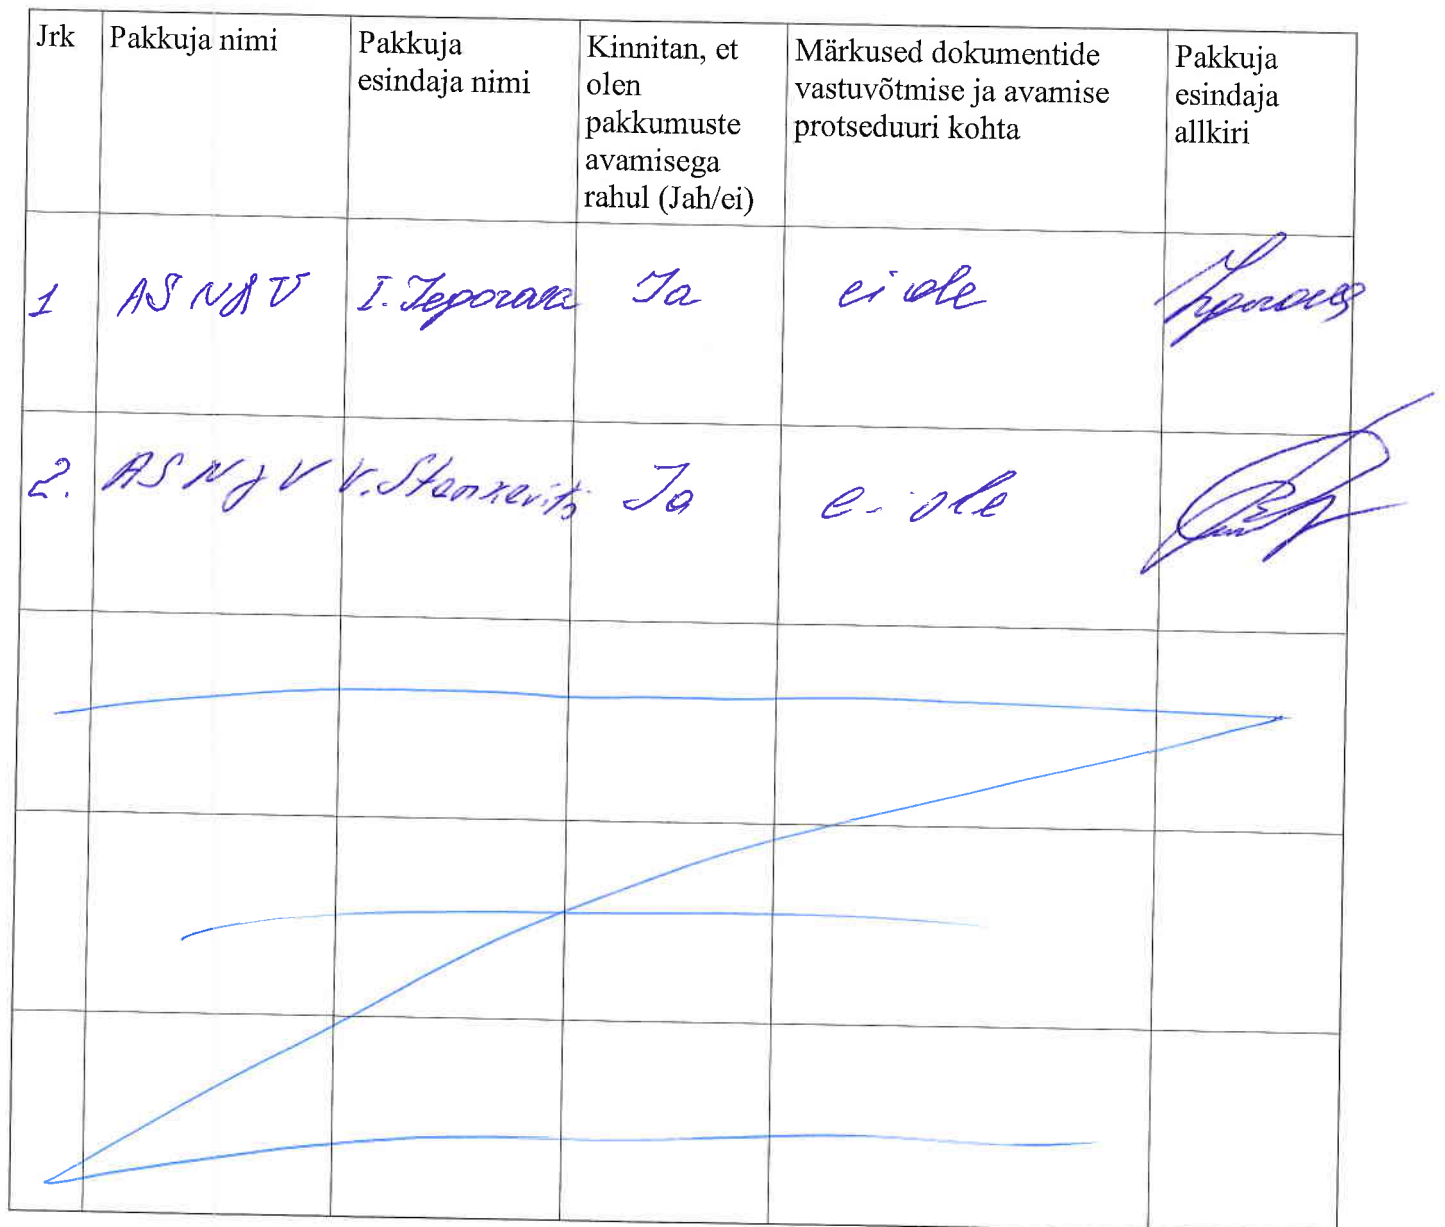 Jrk
Pakkuja nimi
Pakkuja
esindaja nimi
Kinnitan, et
olen
pakkumuste
avamisega
rahul (Jah/ei)
Märkused dokumentide
vastuvõtmise ja avamise
protseduuri kohta
Pakkuja
esindaja
allkiri
1
AS
I. Jegorova
Ja
ei ole
2.
AS
V. Stankevitš
Ja
ei ole